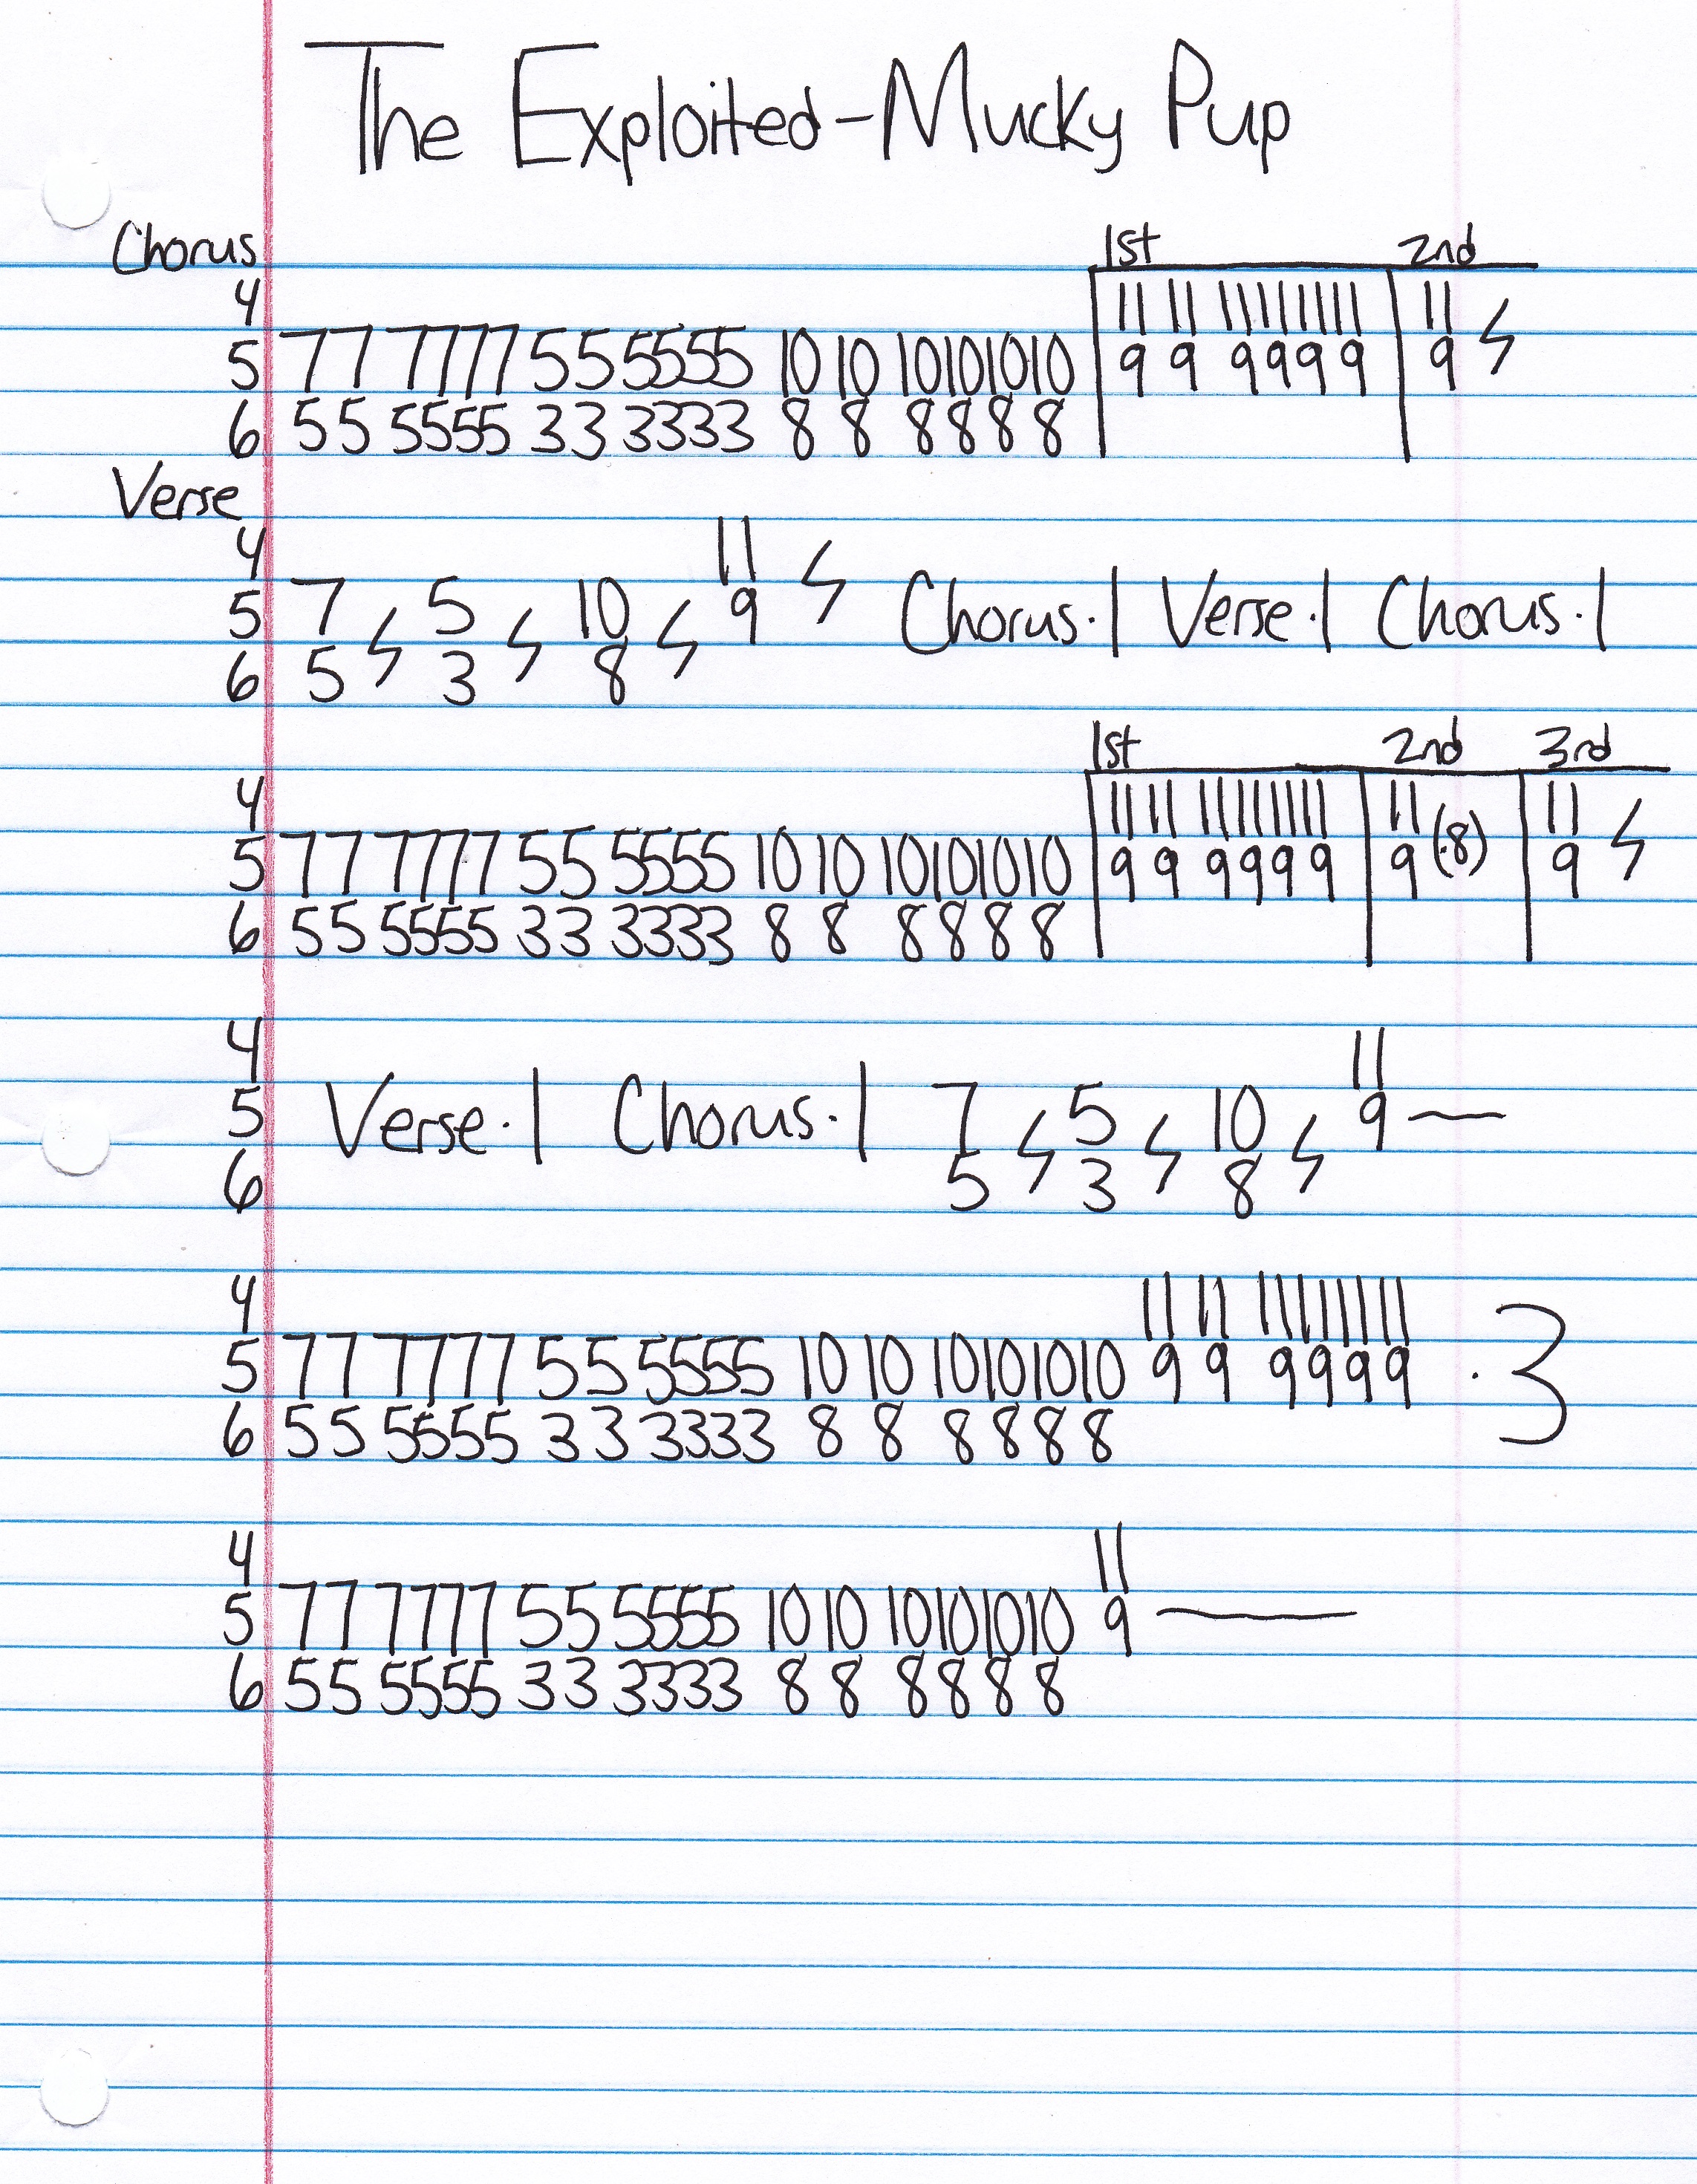 The Exploited-Mucky Pup
Chorus 1st 2nd
4 11 11 11 11 11 11 11
5 7 7 7 7 7 7 5 5 5 5 5 5 10 10 10 10 10 10 9 9 9 9 9 9 9
6 5 5 5 5 5 5 3 3 3 3 3 3 8 8 8 8 8 8
Verse
4 11
5 7 5 10 9 Chorus·1 Verse·1 Chorus·1
6 5 3 8
1st 2nd 3rd
4 11 11 11 11 11 11 11 11
5 7 7 7 7 7 7 5 5 5 5 5 5 10 10 10 10 10 10 9 9 9 9 9 9 9 (·8) 9
6 5 5 5 5 5 5 3 3 3 3 3 3 8 8 8 8 8 8
4 11
5 Verse·1 Chorus·1 7 5 10 9 —
6 5 3 8
4 11 11 11 11 11 11
5 7 7 7 7 7 7 5 5 5 5 5 5 10 10 10 10 10 10 9 9 9 9 9 9 ·3
6 5 5 5 5 5 5 3 3 3 3 3 3 8 8 8 8 8 8
4 11
5 7 7 7 7 7 7 5 5 5 5 5 5 10 10 10 10 10 10 9 —
6 5 5 5 5 5 5 3 3 3 3 3 3 8 8 8 8 8 8